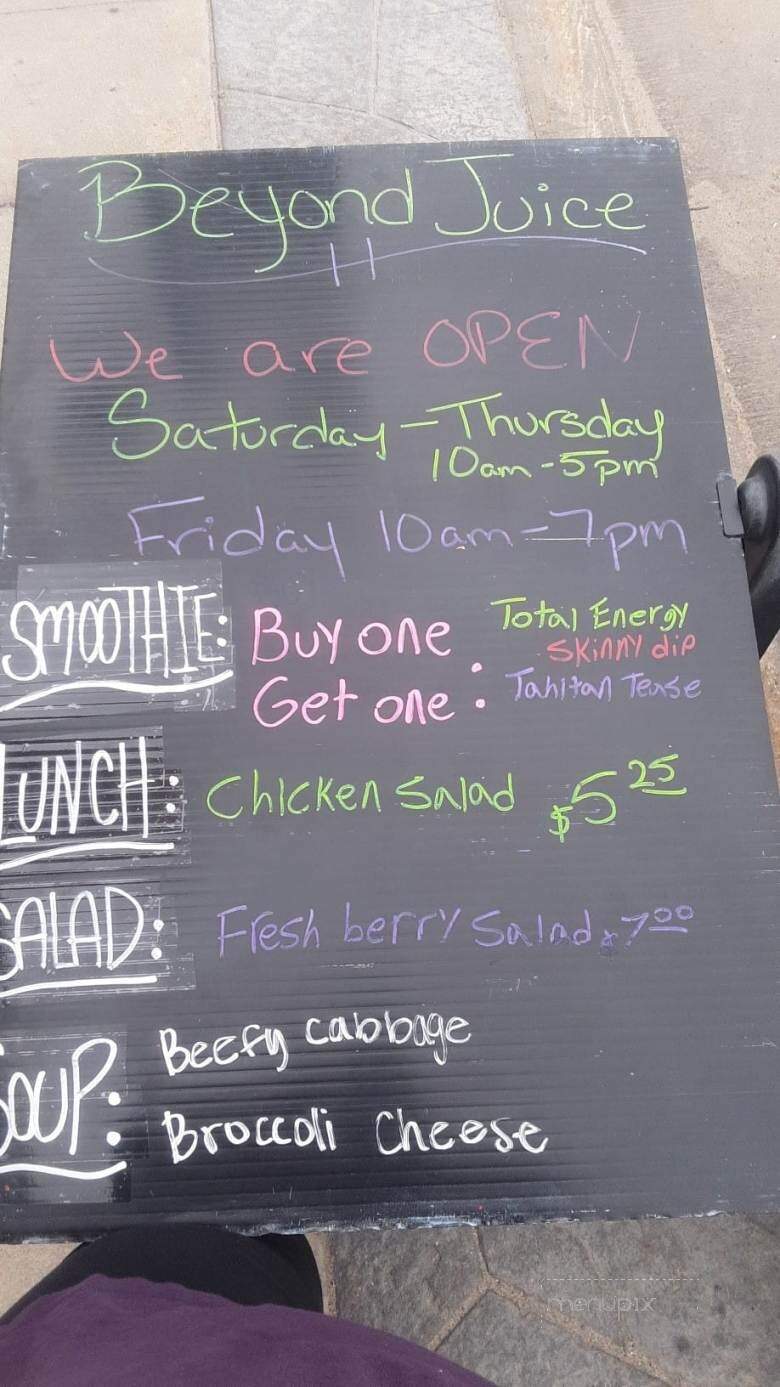 Beyond Juice
We are OPEN
Saturday - Thursday
10am - 5pm
Friday 10am - 7pm
SMOOTHIE: Buy one Get one :
Total Energy
Skinny dip
Tahitan Tease
LUNCH: Chicken Salad $5 25
SALAD: Fresh berry Salad $7 00
SOUP: Beefy cabbage
Broccoli Cheese
menupix